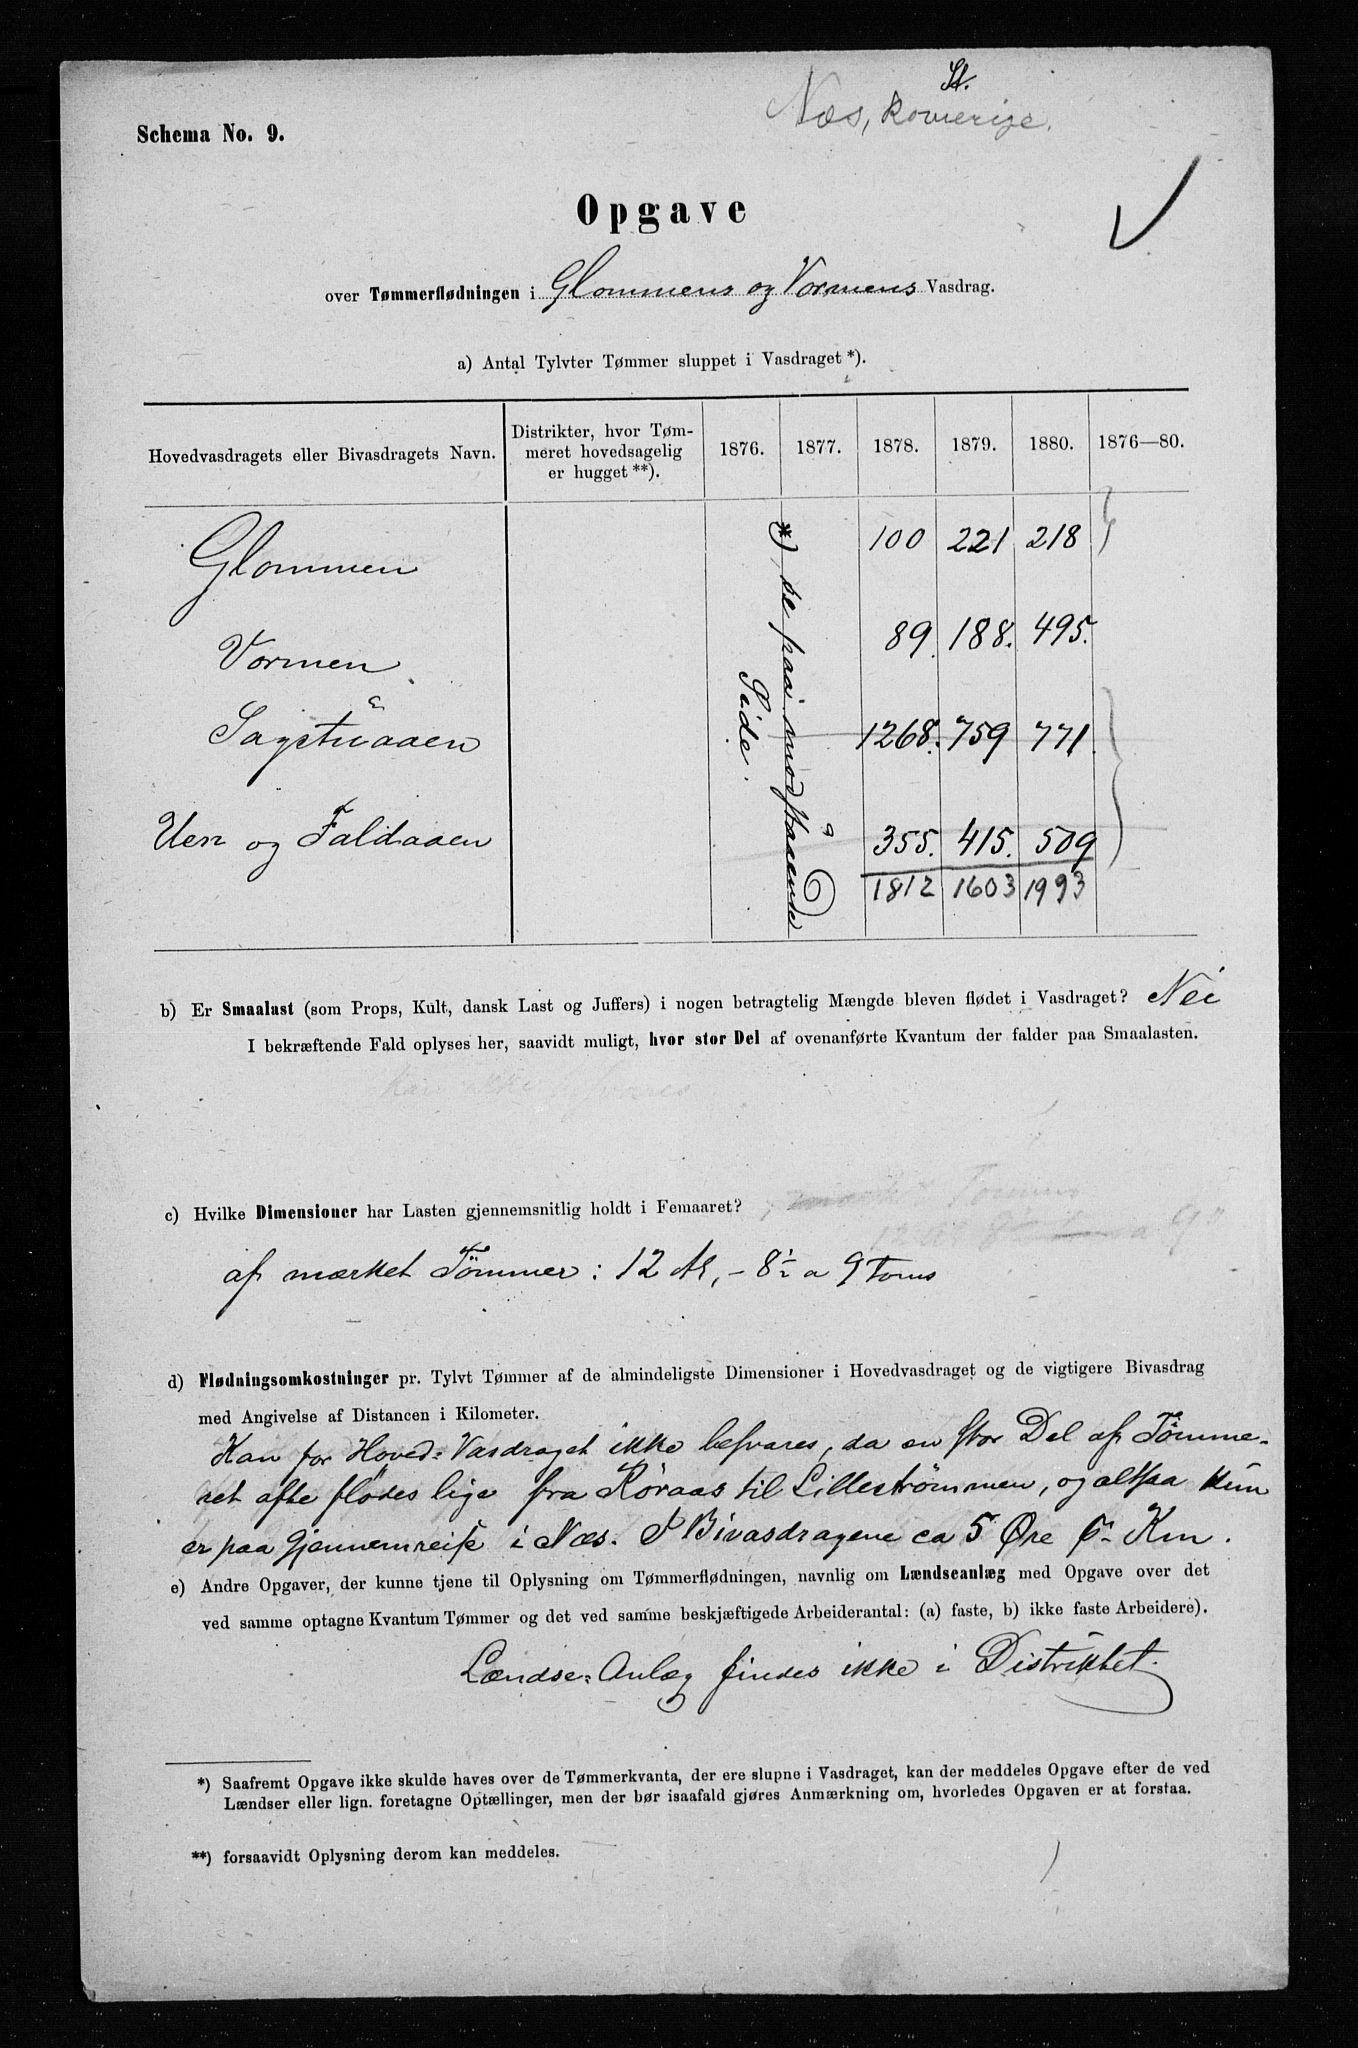 St.
Næs, Romerige.
Schema No. 9.
Opgave
over Tømmerflødningen i Glommens og Vormens Vasdrag.
a) Antal Tylvter Tømmer sluppet i Vasdraget *).
Hovedvasdragets eller Bivasdragets Navn. | Distrikter, hvor Tømmeret hovedsagelig er hugget **). | 1876. | 1877. | 1878. | 1879. | 1880. | 1876—80.
Glommen 100 221 218
Vormen 89. 188. 495.
Sagstuaaen 1268. 759 771.
Uen og Faldaaen 355. 415. 509
1812 1603 1993
*) se paa modstaaende
Side.
b) Er Smaalast (som Props, Kult, dansk Last og Juffers) i nogen betragtelig Mængde bleven flødet i Vasdraget? Nei
I bekræftende Fald oplyses her, saavidt muligt, hvor stor Del af ovenanførte Kvantum der falder paa Smaalasten.
Kan ikke besvares
c) Hvilke Dimensioner har Lasten gjennemsnitlig holdt i Femaaret?
af mærket Tömmer: 12 Al, - 8½ a 9 Toms
d) Flødningsomkostninger pr. Tylvt Tømmer af de almindeligste Dimensioner i Hovedvasdraget og de vigtigere Bivasdrag
med Angivelse af Distancen i Kilometer.
Kan for Hoved-Vasdraget ikke besvares, da en stor Del af Tömme-
ret ofte flødes lige fra Röraas til Lilleströmmen, og altsaa kun
er paa Gjennemreise i Næs. I Bivasdragene ca 5 Øre pr Km.
e) Andre Opgaver, der kunne tjene til Oplysning om Tømmerflødningen, navnlig om Lændseanlæg med Opgave over det
ved samme optagne Kvantum Tømmer og det ved samme beskjæftigede Arbeiderantal: (a) faste, b) ikke faste Arbeidere).
Lændse-Anlæg findes ikke i Distriktet.
*) Saafremt Opgave ikke skulde haves over de Tømmerkvanta, der ere slupne i Vasdraget, kan der meddeles Opgave efter de ved
Lændser eller lign. foretagne Optællinger, men der bør isaafald gjøres Anmærkning om, hvorledes Opgaven er at forstaa.
**) forsaavidt Oplysning derom kan meddeles.